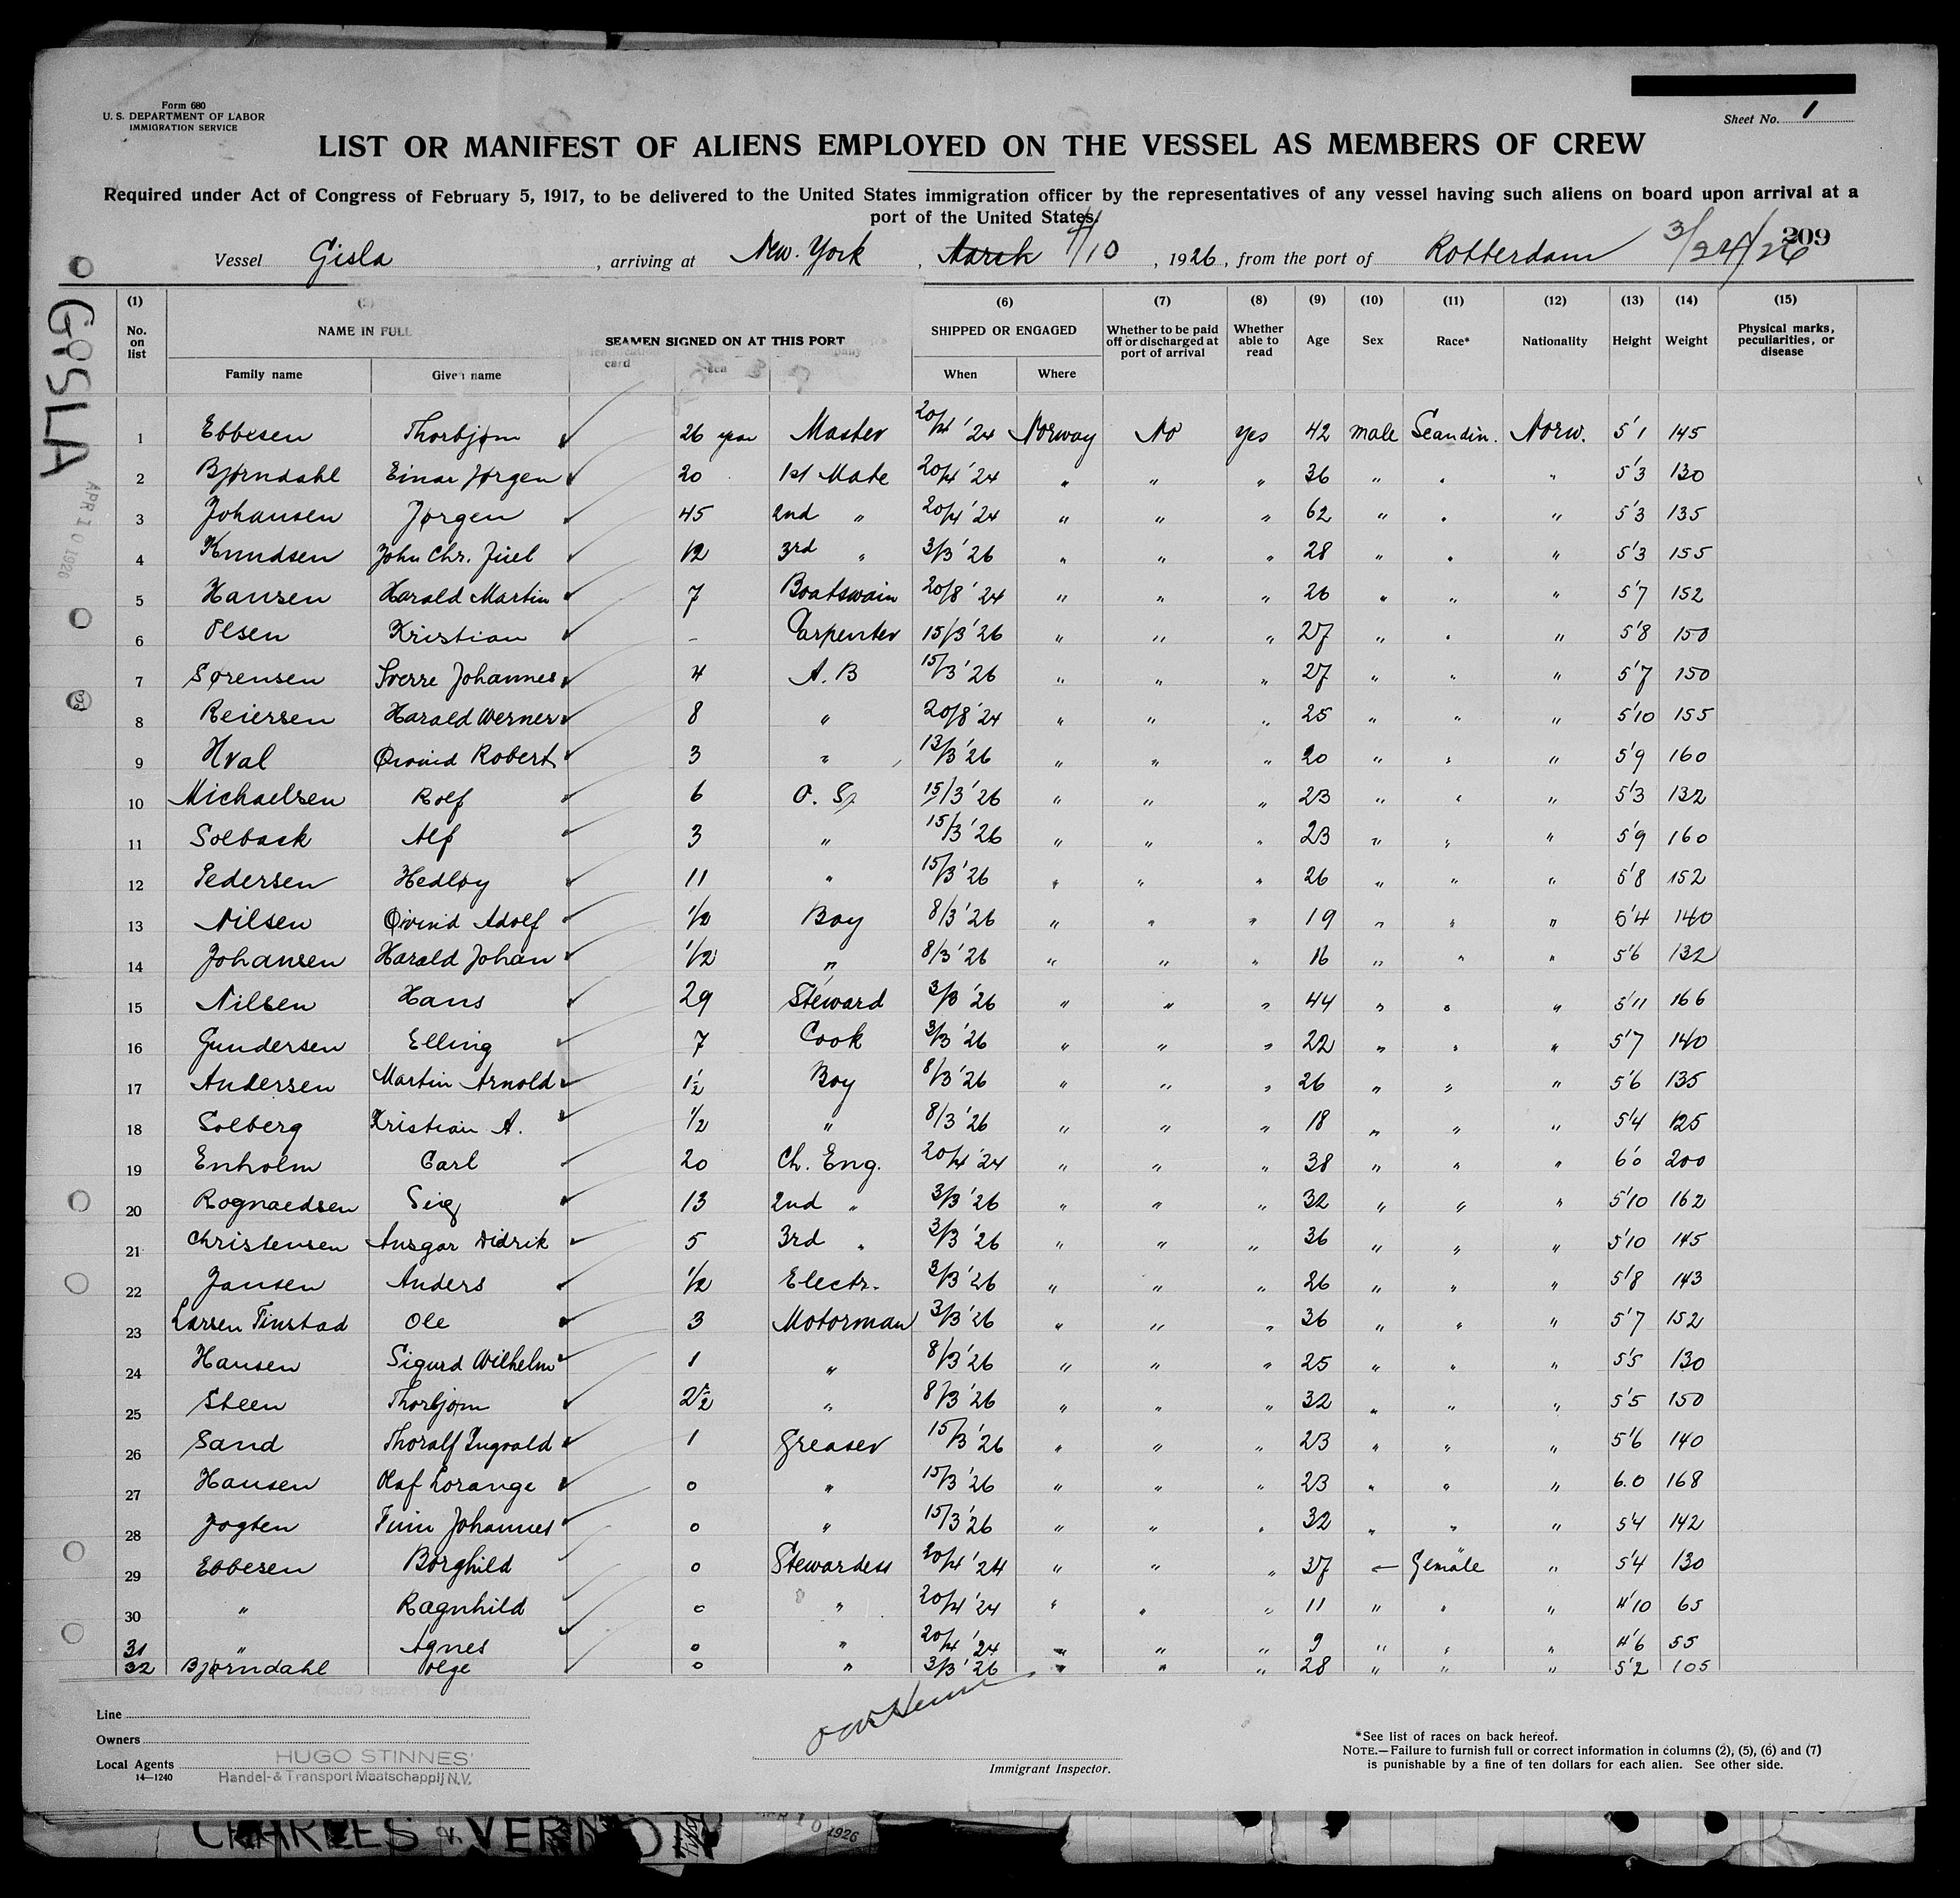 Form 680
U. S. DEPARTMENT OF LABOR
IMMIGRATION SERVICE
Sheet No. 1
LIST OR MANIFEST OF ALIENS EMPLOYED ON THE VESSEL AS MEMBERS OF CREW
Required under Act of Congress of February 5, 1917, to be delivered to the United States immigration officer by the representatives of any vessel having such aliens on board upon arrival at a
port of the United States.
209
Vessel Gisla, arriving at New. York, March 4/10, 1926, from the port of Rotterdam 3/24/26
GISLA
APR 10 1926
(1) (6) (7) (8) (9) (10) (11) (12) (13) (14) (15)
No. on list NAME IN FULL SEAMEN SIGNED ON AT THIS PORT SHIPPED OR ENGAGED Whether to be paid off or discharged at port of arrival Whether able to read Age Sex Race* Nationality Height Weight Physical marks, peculiarities, or disease
Family name Given name card When Where
1 Ebbesen Thorbjørn 26 year Master 20/4 '24 Norway No yes 42 male Scandin. Norw. 5'1 145
2 Bjørndahl Einar Jørgen 20 1st Mate 20/4 '24 " " " 36 " " " 5'3 130
3 Johansen Jørgen 45 2nd " 20/4 '24 " " " 62 " " " 5'3 135
4 Knudsen John Chr. Juel 12 3rd " 3/3 '26 " " " 28 " " " 5'3 155
5 Hansen Harald Martin 7 Boatswain 20/8 '24 " " " 26 " " " 5'7 152
6 Olsen Kristian - Carpenter 15/3 '26 " " " 27 " " " 5'8 150
7 Sørensen Sverre Johannes 4 A. B 15/3 '26 " " " 27 " " " 5'7 150
8 Reiersen Harald Werner 8 " 20/8 '24 " " " 25 " " " 5'10 155
9 Hval Øivind Robert 3 " 13/3 '26 " " " 20 " " " 5'9 160
10 Michaelsen Rolf 6 O. S. 15/3 '26 " " " 23 " " " 5'3 132
11 Solback Alf 3 " 15/3 '26 " " " 23 " " " 5'9 160
12 Pedersen Hedløy 11 " 15/3 '26 " " " 26 " " " 5'8 152
13 Nilsen Øivind Adolf 1/2 Boy 8/3 '26 " " " 19 " " " 5'4 140
14 Johansen Harald Johan 1/2 " 8/3 '26 " " " 16 " " " 5'6 132
15 Nilsen Hans 29 Steward 3/3 '26 " " " 44 " " " 5'11 166
16 Gundersen Elling 7 Cook 3/3 '26 " " " 22 " " " 5'7 140
17 Andersen Martin Arnold 1 1/2 Boy 8/3 '26 " " " 26 " " " 5'6 135
18 Solberg Kristian A. 1/2 " 8/3 '26 " " " 18 " " " 5'4 125
19 Enholm Carl 20 Ch. Eng. 20/4 '24 " " " 38 " " " 6'0 200
20 Rognaldsen Sig 13 2nd " 3/3 '26 " " " 32 " " " 5'10 162
21 Christensen Ansgar Didrik 5 3rd " 3/3 '26 " " " 36 " " " 5'10 145
22 Jansen Anders 1/2 Electr. 3/3 '26 " " " 26 " " " 5'8 143
23 Larsen Tinstad Ole 3 Motorman 3/3 '26 " " " 36 " " " 5'7 152
24 Hansen Sigurd Wilhelm 1 " 8/3 '26 " " " 25 " " " 5'5 130
25 Steen Thorbjørn 2 1/2 " 8/3 '26 " " " 32 " " " 5'5 150
26 Sand Thoralf Ingvald 1 Greaser 15/3 '26 " " " 23 " " " 5'6 140
27 Hansen Olaf Lorange 0 " 15/3 '26 " " " 23 " " " 6.0 168
28 Jogten Finn Johannes 0 " 15/3 '26 " " " 32 " " " 5'4 142
29 Ebbesen Borghild 0 Stewardess 20/4 '24 " " " 37 Female " " 5'4 130
30 " Ragnhild 0 " 20/4 '24 " " " 11 " " " 4'10 65
31 " Agnes 0 " 20/4 '24 " " " 9 " " " 4'6 55
32 Bjørndahl Olge 0 " 3/3 '26 " " " 28 " " " 5'2 105
Line
Owners
Local Agents HUGO STINNES
14—1240 Handel- & Transport Maatschappij N.V.
Immigrant Inspector.
*See list of races on back hereof.
NOTE.—Failure to furnish full or correct information in columns (2), (5), (6) and (7)
is punishable by a fine of ten dollars for each alien. See other side.
CHARLES VERNON
1926